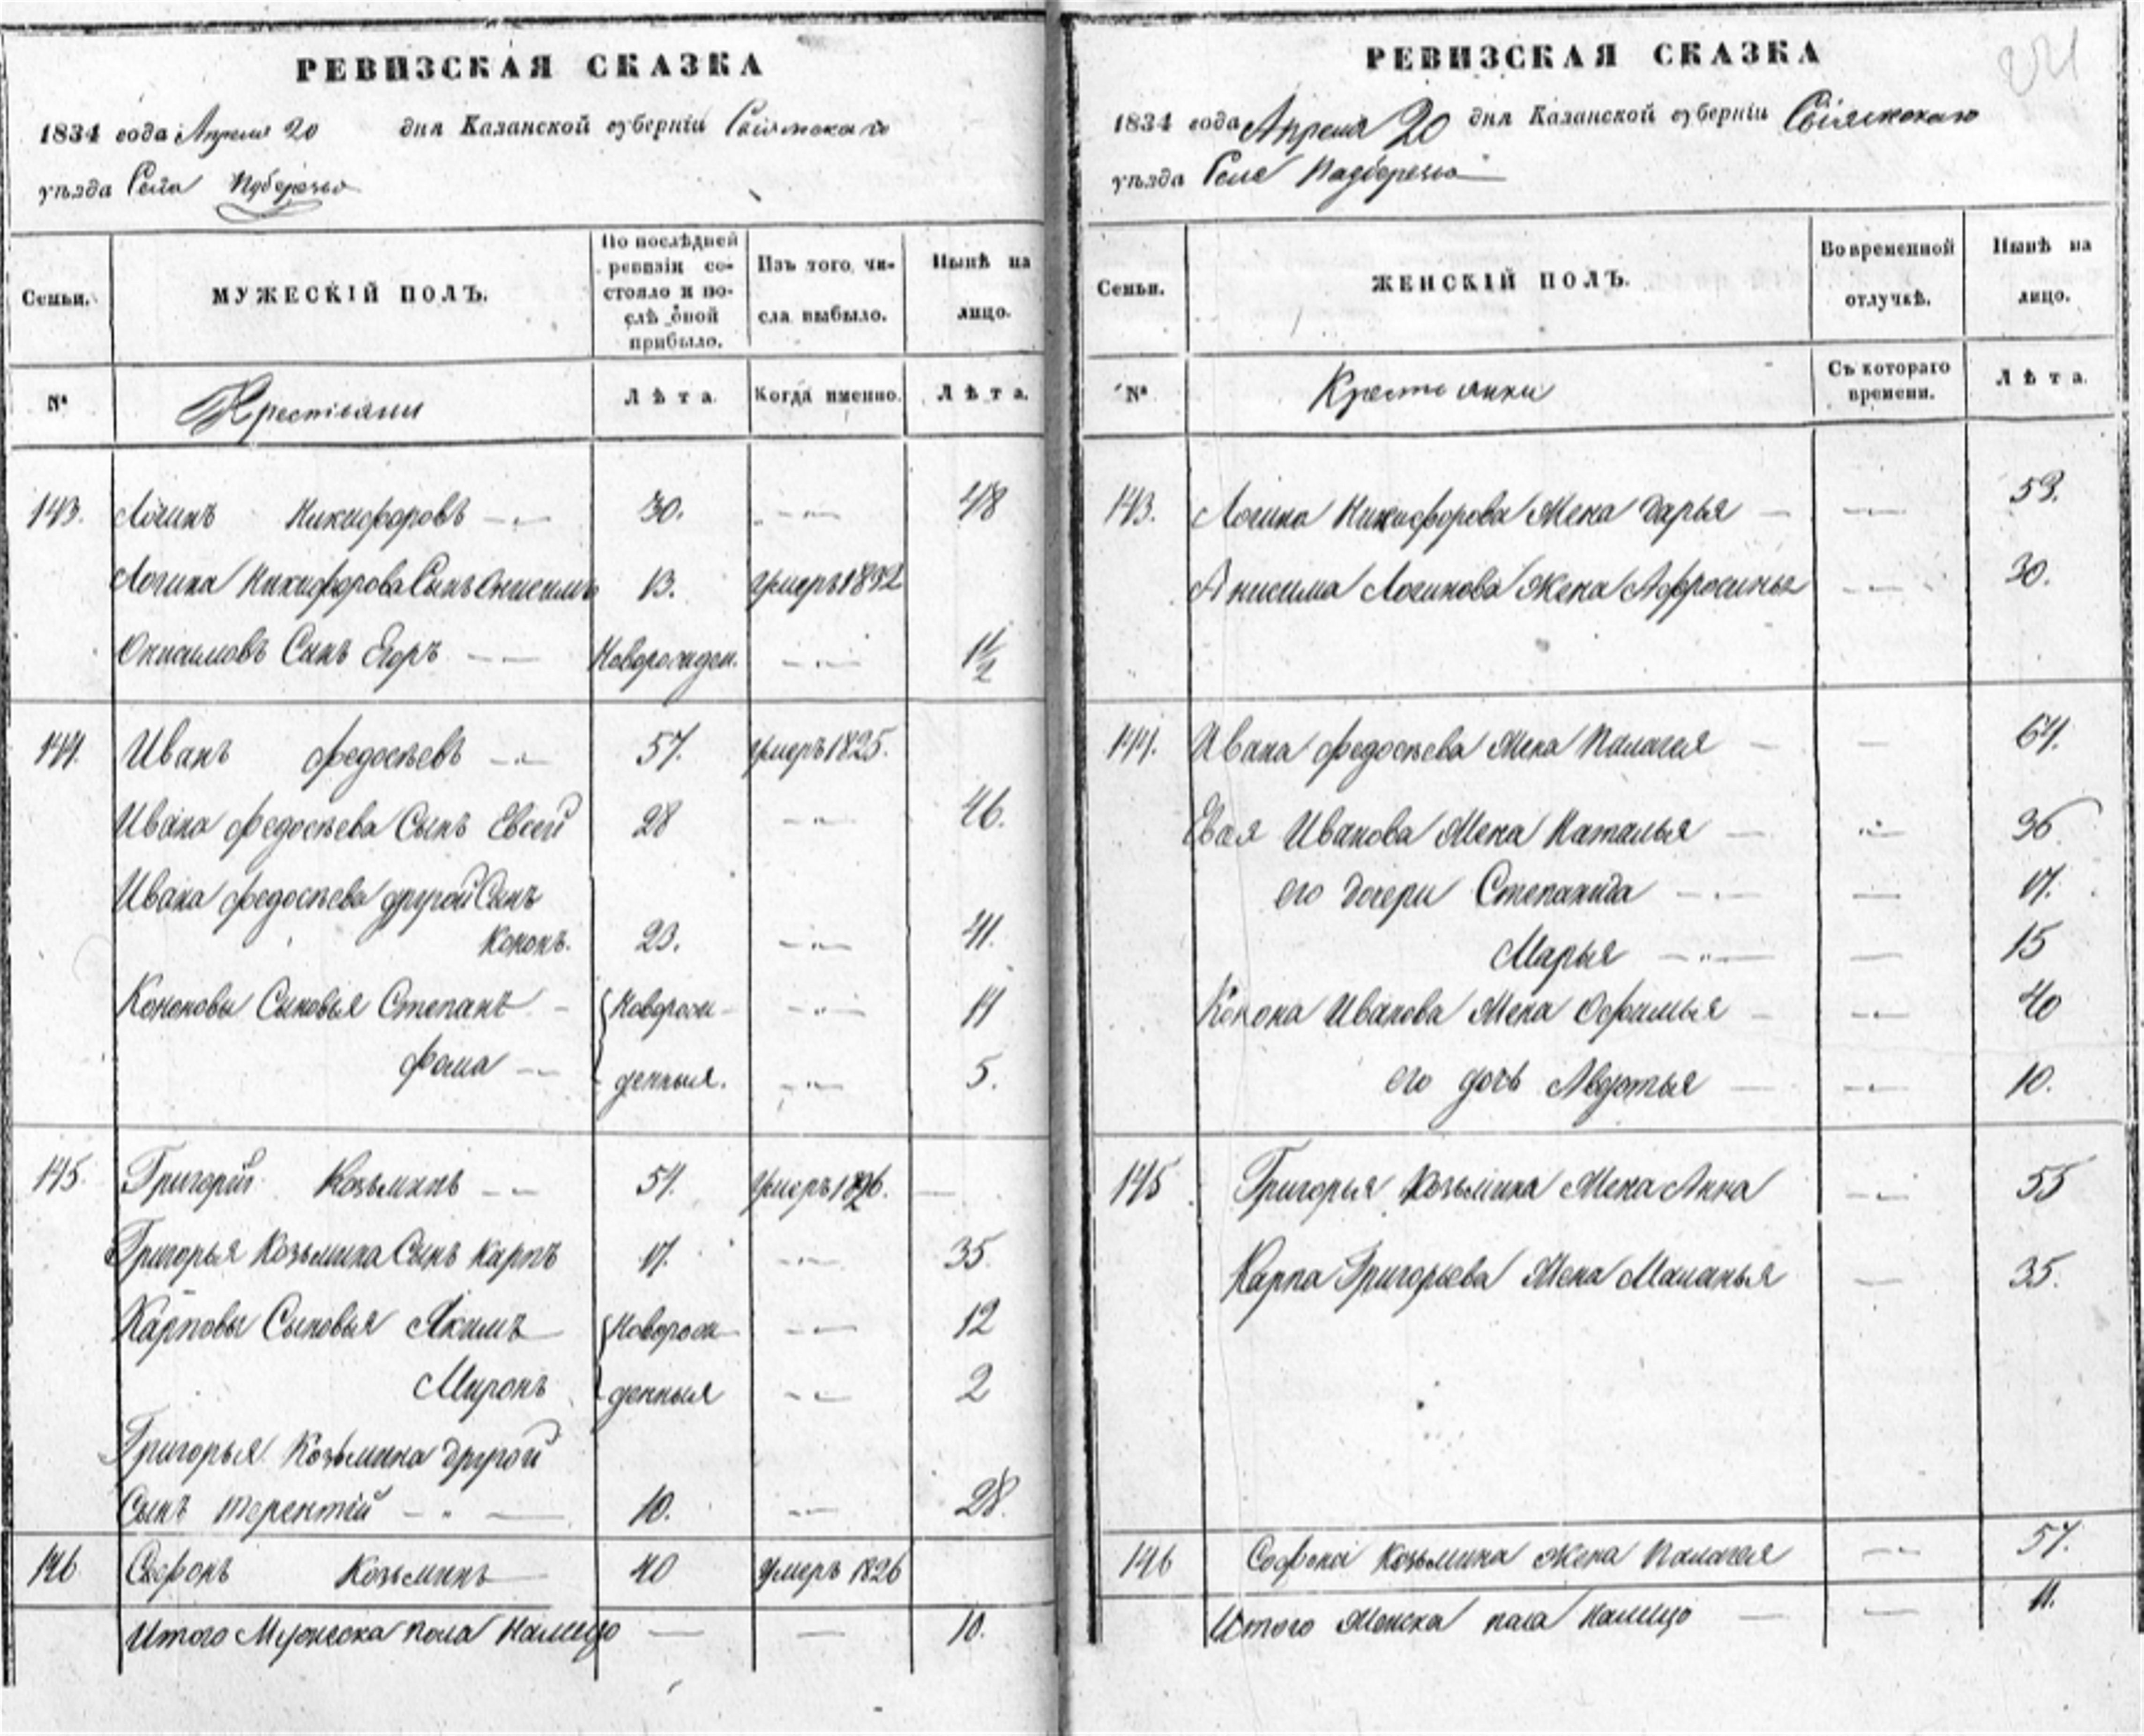 РЕВИЗСКАЯ СКАЗКА
1834 года Апреля 20 дня Казанской губерніи Свіяжскаго
уѣзда Села Подберезья
Семьи.
МУЖЕСКІЙ ПОЛЪ.
По послѣдней ревизіи состояло и послѣ оной прибыло.
Изъ того числа выбыло.
Нынѣ на лицо.
№
Крестьяни
Лѣта.
Когда именно.
Лѣта.
143. Логинъ Никифоровъ 30. 48
Логина Никифорова Сынъ Онисимъ 13. умеръ 1832
Онисимовъ Сынъ Егоръ Новорожден. 1 1/2
144. Иванъ Федосѣевъ 57. умеръ 1825.
Ивана Федосѣева Сынъ Евсей 28 46.
Ивана Федосѣева другой Сынъ
Кононъ. 23. 41.
Кононовы Сыновья Степанъ Новорож- 11
Фома денныя. 5.
145. Григорій Козьминъ 54. умеръ 1826.
Григорья Козьмина Сынъ Карпъ 17. 35
Карповы Сыновья Якимъ Новорож- 12
Миронъ денныя 2
Григорья Козьмина другой
Сынъ Терентій 10. 28.
146 Софонъ Козьминъ 40 умеръ 1826
Итого Мужеска пола Налицо 10.
РЕВИЗСКАЯ СКАЗКА
1834 года Апреля 20 дня Казанской губерніи Свіяжскаго
уѣзда Села Подберезья
Семьи.
ЖЕНСКІЙ ПОЛЪ.
Во временной отлучкѣ.
Нынѣ на лицо.
№
Крестьянки
Съ котораго времени.
Лѣта.
143. Логина Никифорова Жена Дарья 53.
Анисима Логинова Жена Афросинья 30.
144. Ивана Федосѣева Жена Палагея 64.
Евсея Иванова Жена Наталья 36
его дочери Степанида 17.
Марья 15
Конона Иванова Жена Офимья 40
его дочь Авдотья 10.
145 Григорья Козьмина Жена Анна 55
Карпа Григорьева Жена Маланья 35.
146 Софона Козьмина Жена Палагея 57.
Итого Женска пола налицо 11.